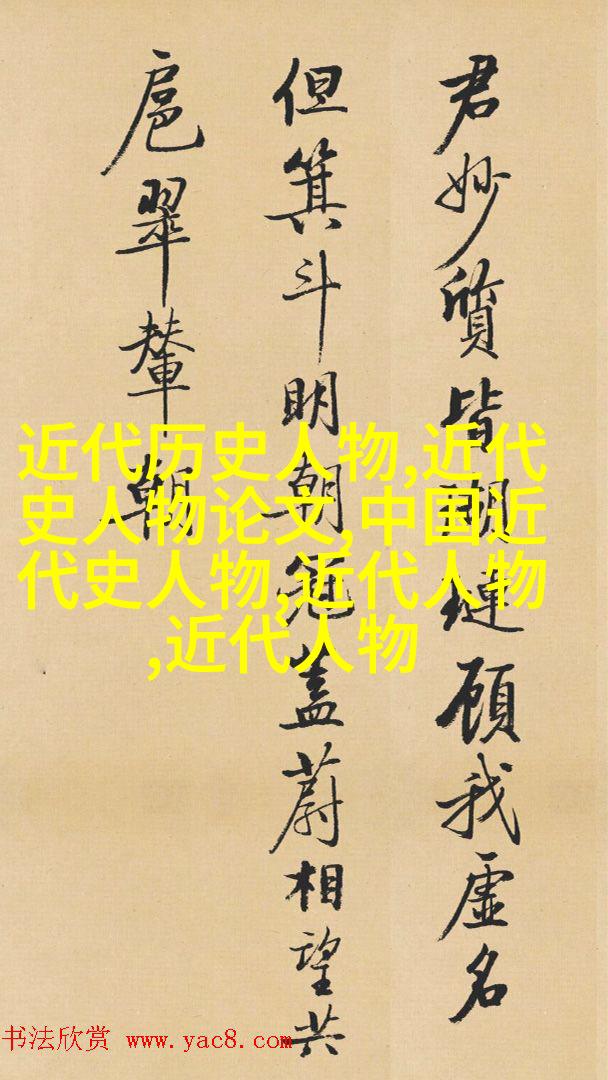 君妙質皆瑚璉顧我虛名
但箕斗明朝冠蓋蔚相望共
扈翠輦朝
近代历史人物,近代
史人物论文,中国近
代史人物,近代人物
,近代人物
书法欣赏 www.yac8.com